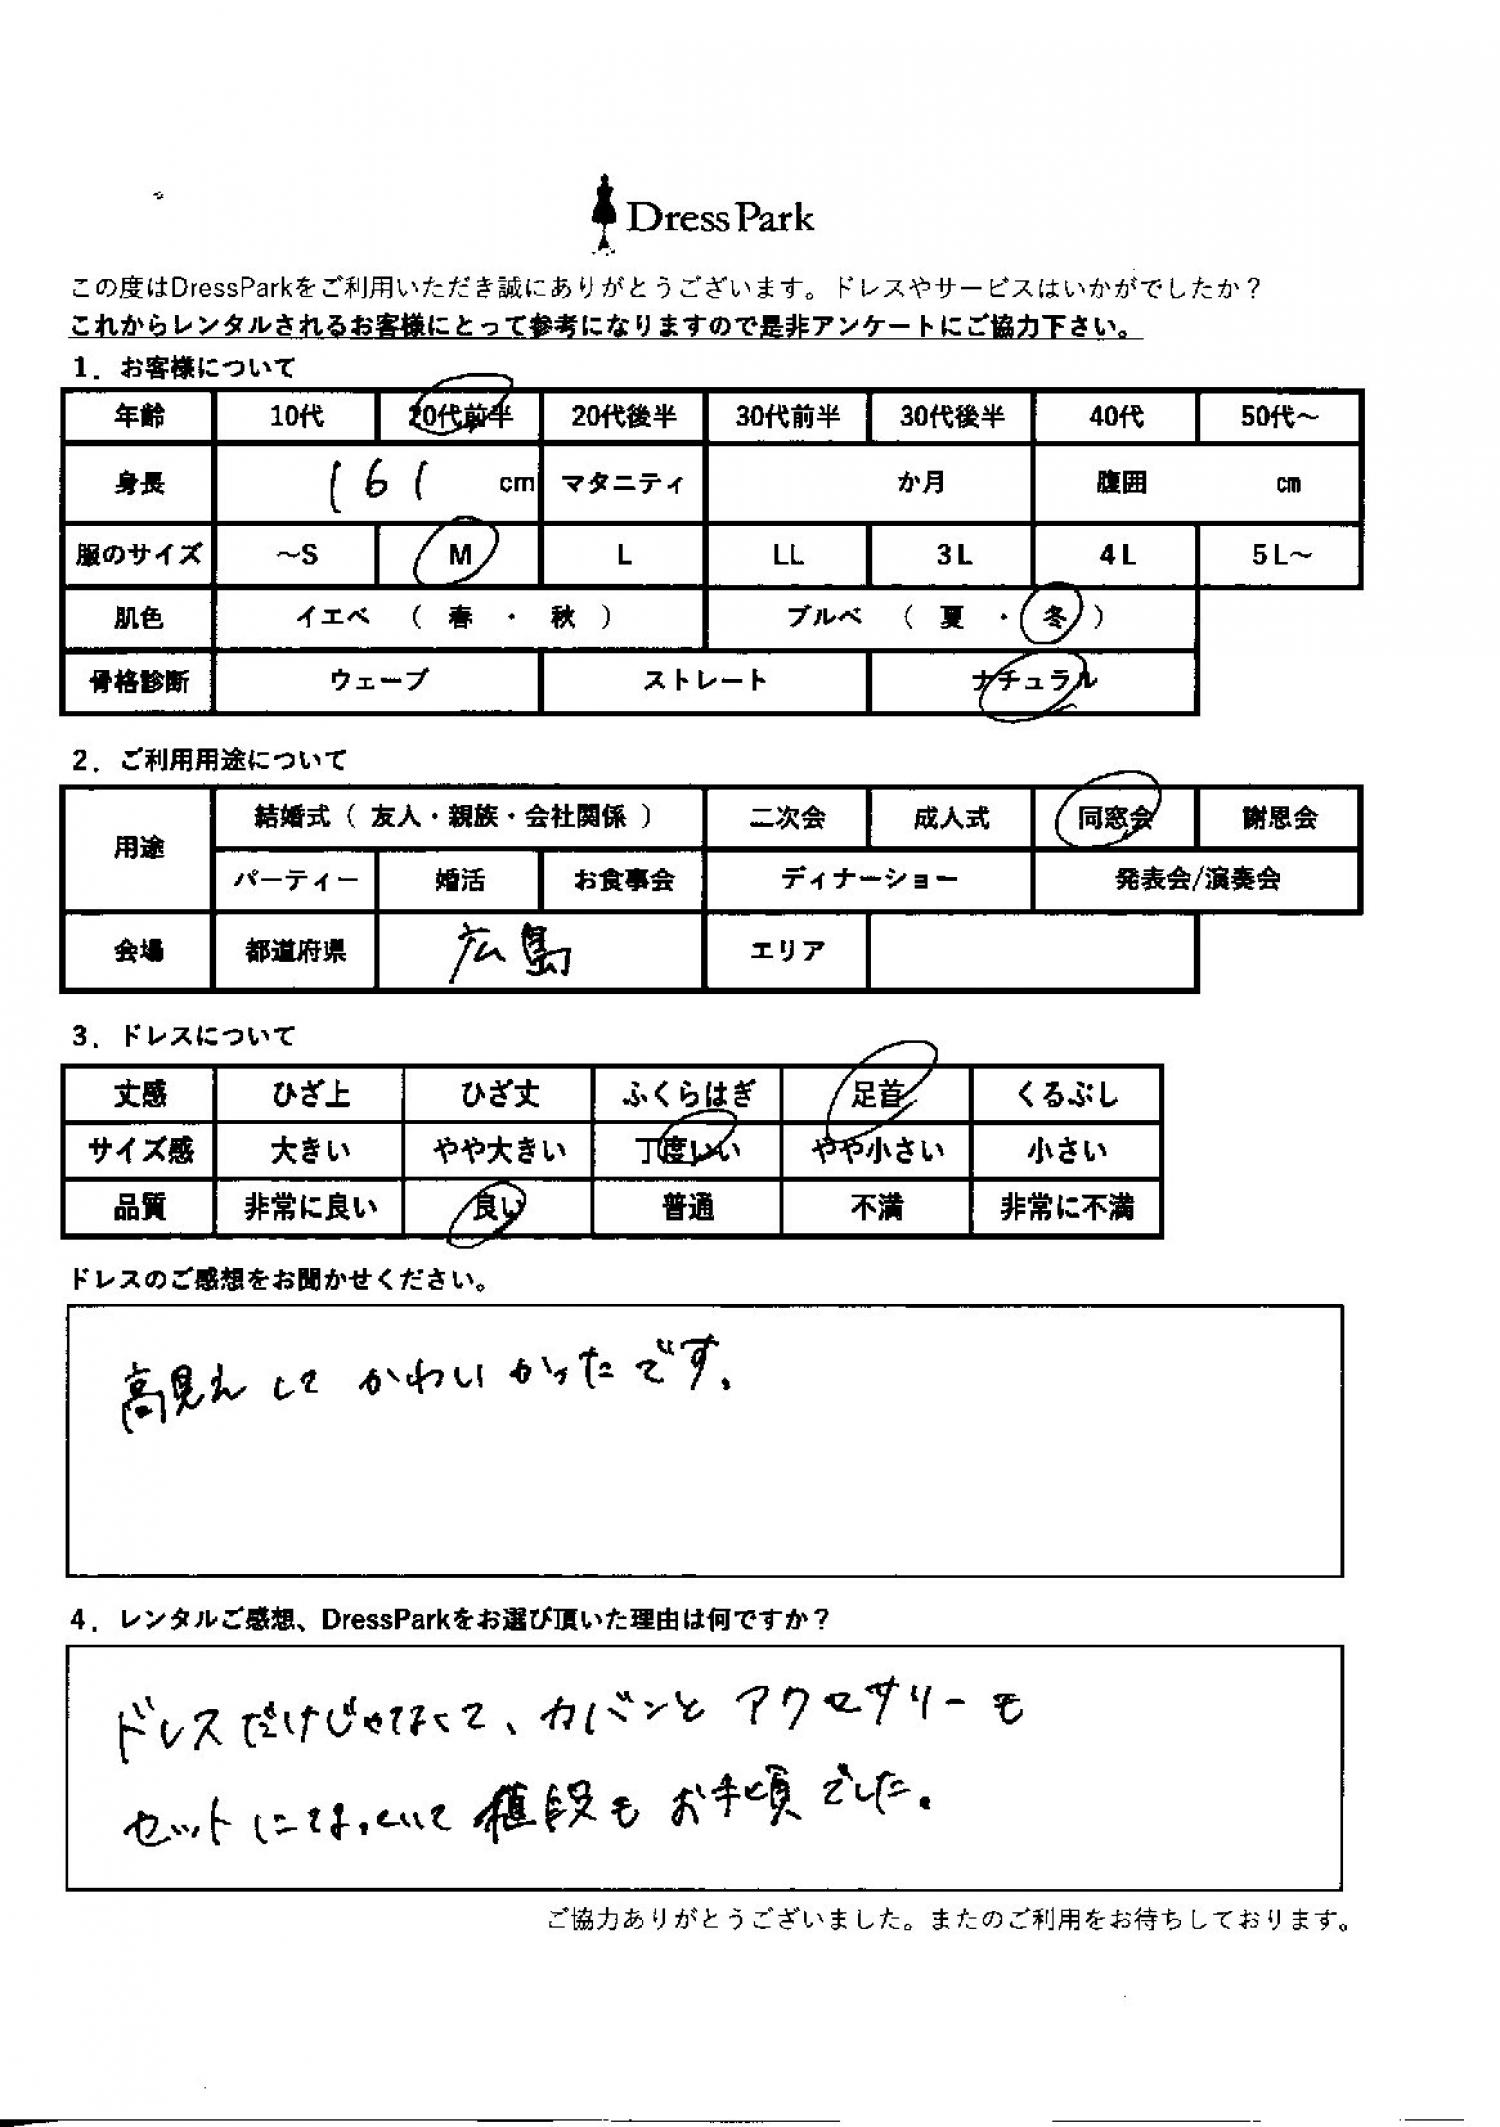 Dress Park
この度はDressParkをご利用いただき誠にありがとうございます。ドレスやサービスはいかがでしたか？
これからレンタルされるお客様にとって参考になりますので是非アンケートにご協力下さい。
1．お客様について
年齢 10代 20代前半 20代後半 30代前半 30代後半 40代 50代～
身長 161 cm マタニティ か月 腹囲 cm
服のサイズ ～S M L LL 3L 4L 5L～
肌色 イエベ （ 春 ・ 秋 ） ブルベ （ 夏 ・ 冬 ）
骨格診断 ウェーブ ストレート ナチュラル
2．ご利用用途について
用途 結婚式（ 友人・親族・会社関係 ） 二次会 成人式 同窓会 謝恩会
パーティー 婚活 お食事会 ディナーショー 発表会/演奏会
会場 都道府県 広島 エリア
3．ドレスについて
丈感 ひざ上 ひざ丈 ふくらはぎ 足首 くるぶし
サイズ感 大きい やや大きい 丁度いい やや小さい 小さい
品質 非常に良い 良い 普通 不満 非常に不満
ドレスのご感想をお聞かせください。
高見えしてかわいかったです。
4．レンタルご感想、DressParkをお選び頂いた理由は何ですか？
ドレスだけじゃなくて、カバンとアクセサリーも
セットになっていて値段もお手頃でした。
ご協力ありがとうございました。またのご利用をお待ちしております。